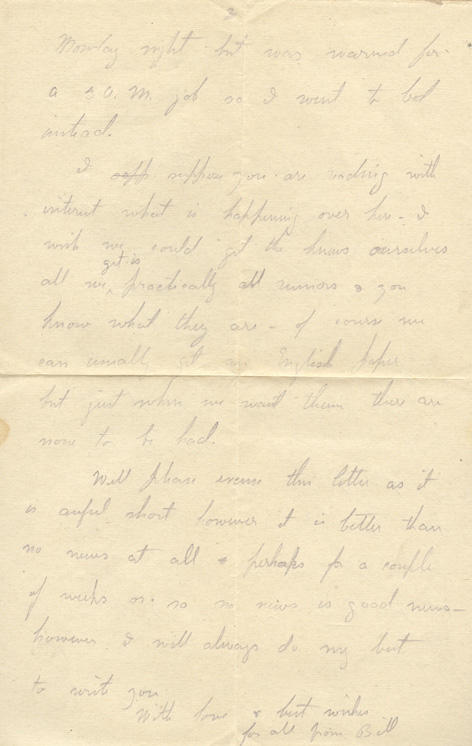 2
Monday night but was warned for
a 3 A.M. job so I went to bed
instead.
I supp suppose you are reading with
interest what is happening over here - I
wish we could get the knews ourselves
get is
all we, practically all rumors & you
know what they are - of course we
can usually get an English paper
but just when we want them there are
none to be had.
Well please excuse this letter as it
is awful short however it is better than
no news at all & perhaps for a couple
of weeks or so no news is good news -
however I will always do my best
to write you
With love & best wishes
for all from Bill